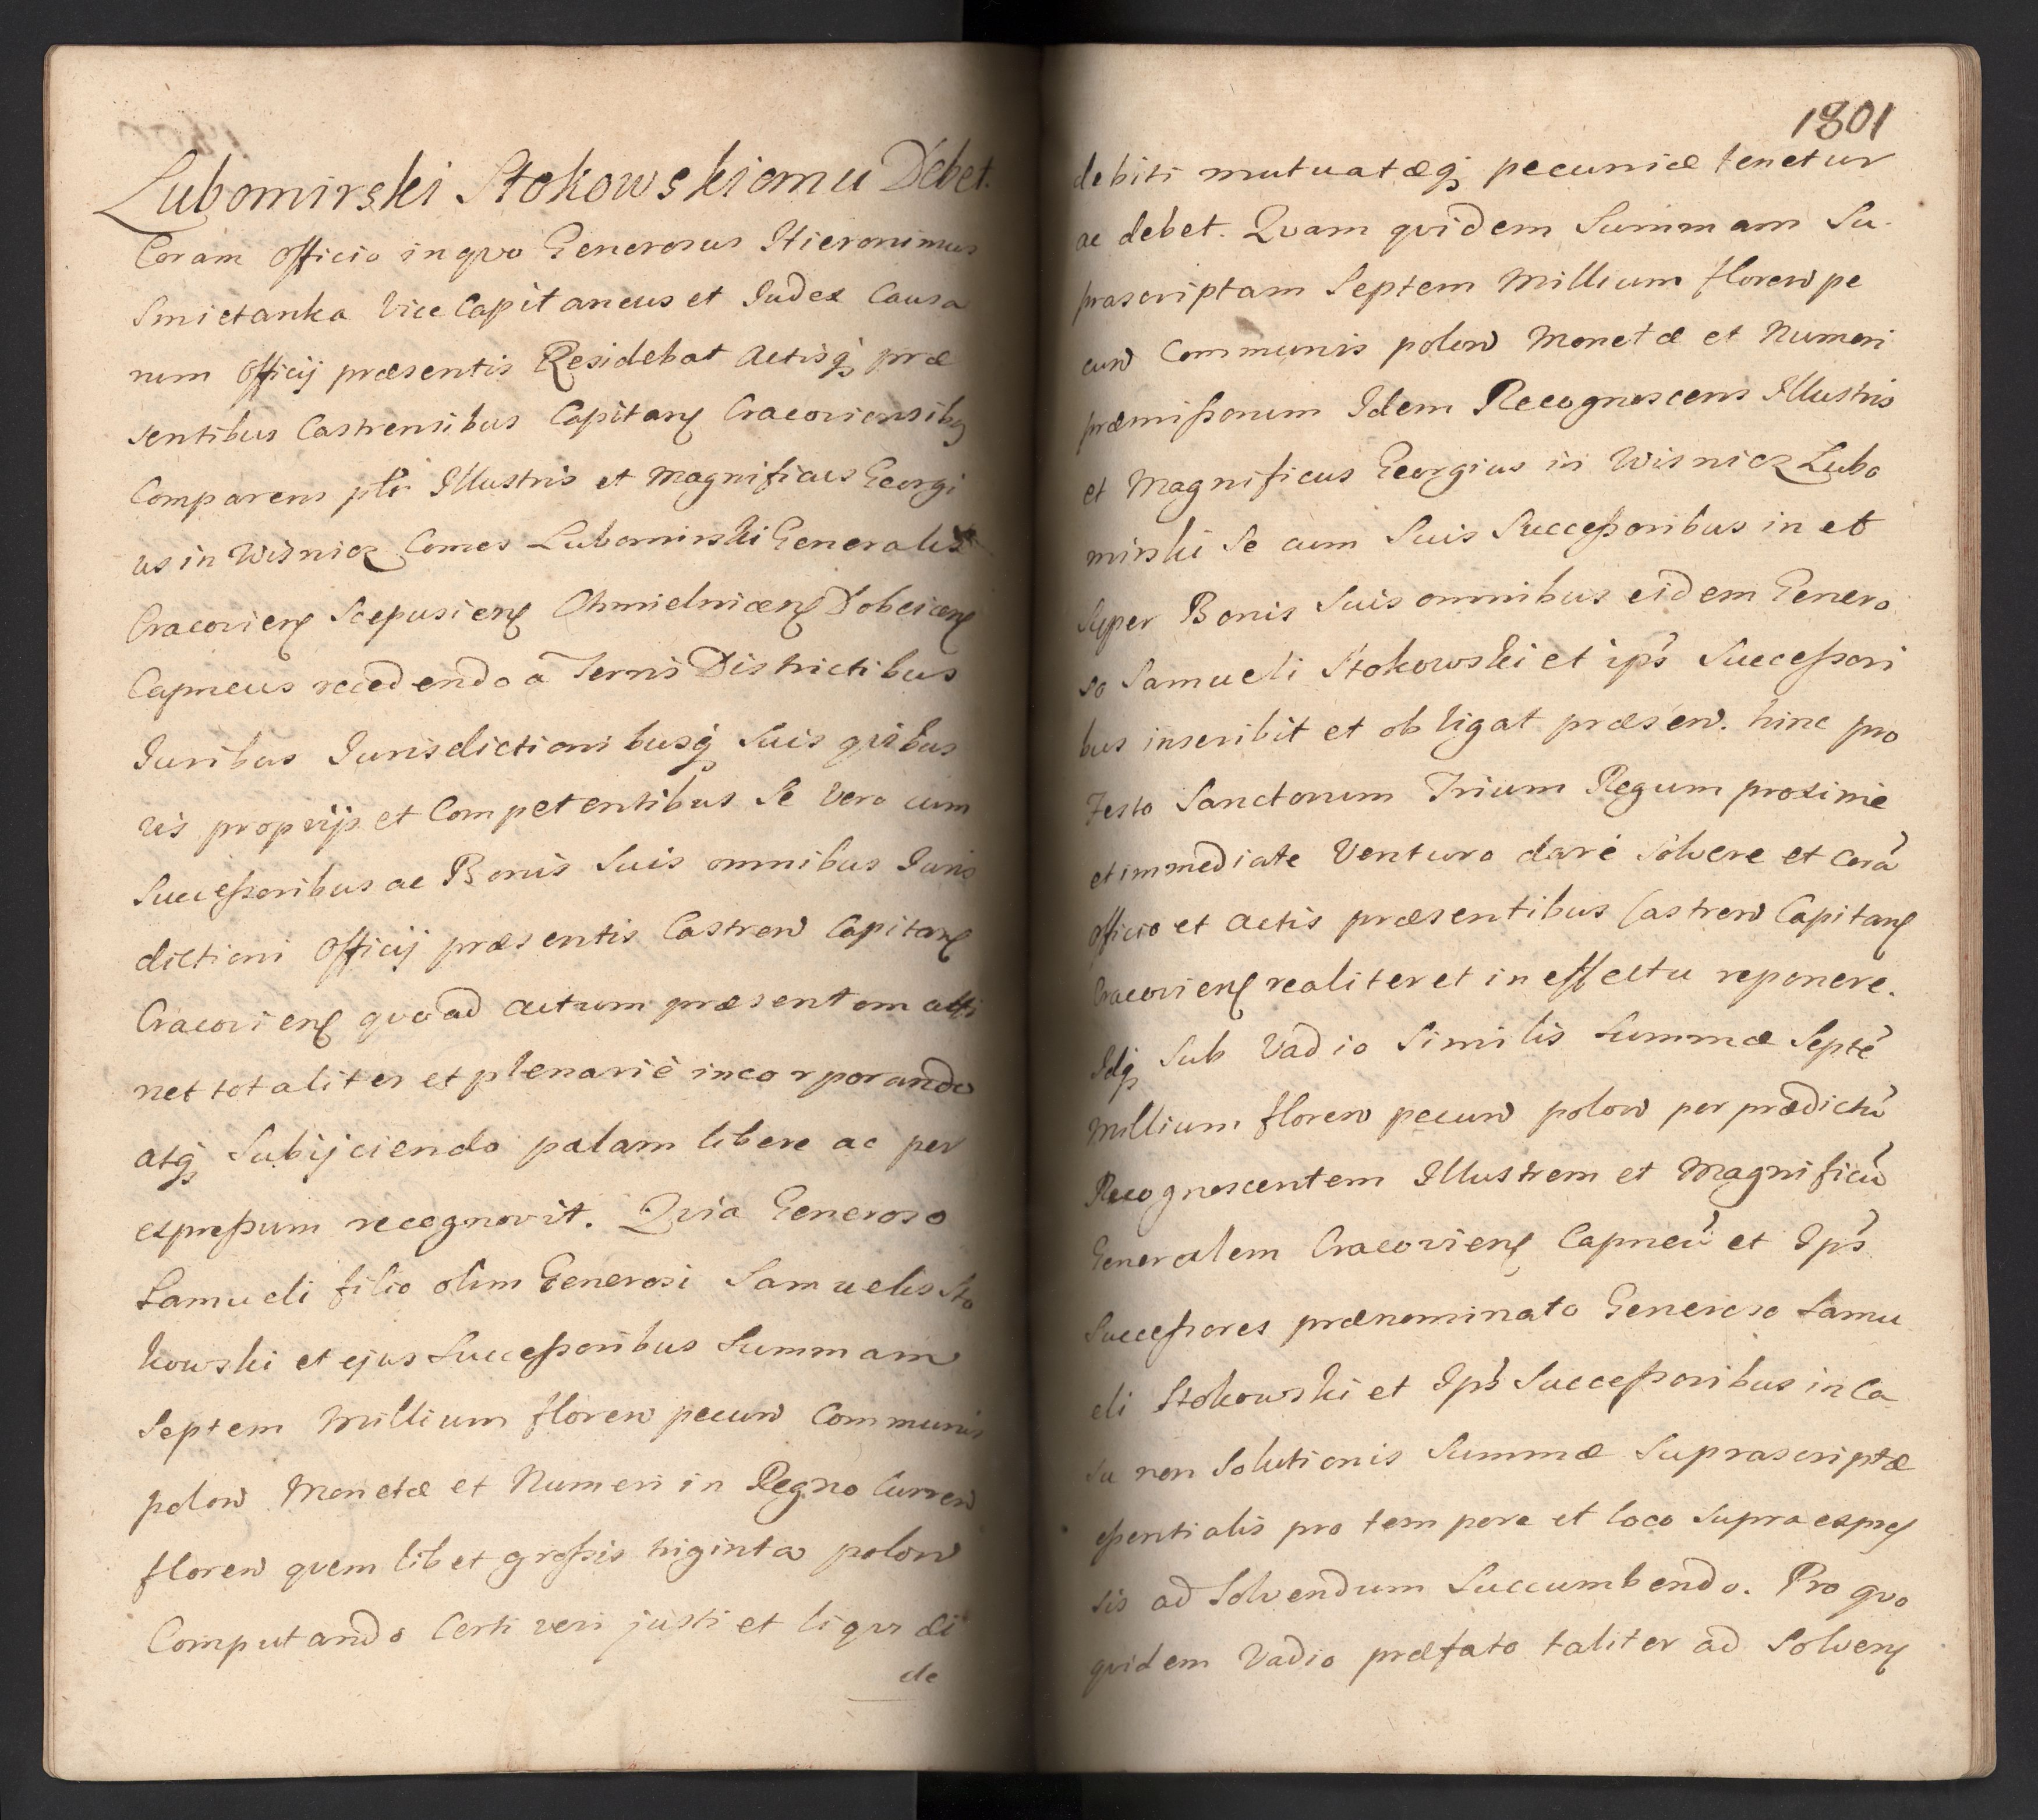 Lubomirski Stokowskiomu Debet.
Coram Officio in qvo Generosus Hieronimus
Smietanka Vice Capitaneus et Judex Causa
rum Officij præsentis Residebat Actisq; præ
sentibus Castrensibus Capitan Cracoviensibq
Comparens Illustris et Magnificus Georgi
us in Wisnicz Comes Lubomirski Generalis
Cracovien Scepusien Chmielnicen Dobcicen
Capneus recedendo a Terris Districtibus
Juribus Jurisdictionibusq; Suis qvibus
vis proprijs et Competentibus Se Vero cum
Successoribus ac Bonis Suis omnibus Juris
dictioni Officij præsentis Castren Capitan
Cracovien qvo ad Actum præsentem atti
net totaliter et plenarie incorporando
atq; Subijciendo palam libere ac per
expressum recognovit. Qvia Generoso
Samueli filio olim Generosi Samuelis Sto
kowski et ejus Successoribus Summam
Septem Millium floren pecun Communis
polon Monetæ et Numeri in Regno Curren
floren qvem libet grossis triginta polon
Computando Certi veri justi et liqvidi
de
1801
debiti mutuatæq; pecuniæ tenetur
ac debet. Qvam qvidem Summam Su
prascriptam Septem Millium floren pe
cun Communis polon Monetæ et Numeri
præmissorum Idem Recognoscens Illustris
et Magnificus Georgius in Wisnicz Lubo
mirski Se cum Suis Successoribus in et
Super Bonis Suis omnibus eidem Genero
so Samueli Stokowski et ips Successori
bus inscribit et obligat præsen. hinc pro
Festo Sanctorum Trium Regum proxime
et immediate Venturo dare solvere et Corã
Officio et Actis præsentibus Castren Capitan
Cracovien realiter et in effectu reponere.
Idq; Sub Vadio Similis Summæ Septẽ
Millium floren pecun polon per prædictũ
Recognoscentem Illustrem et Magnificũ
Generalem Cracovien Capneũ et Ips
Successores prænominato Generoso Samu
eli Stokowski et Ips Successoribus in Ca
su non Solutionis Summæ Suprascriptæ
essentialis pro tempore et loco Supra expres
sis ad Solvendum Succumbendo. Pro qvo
qvidem Vadio præfato taliter ad Solven